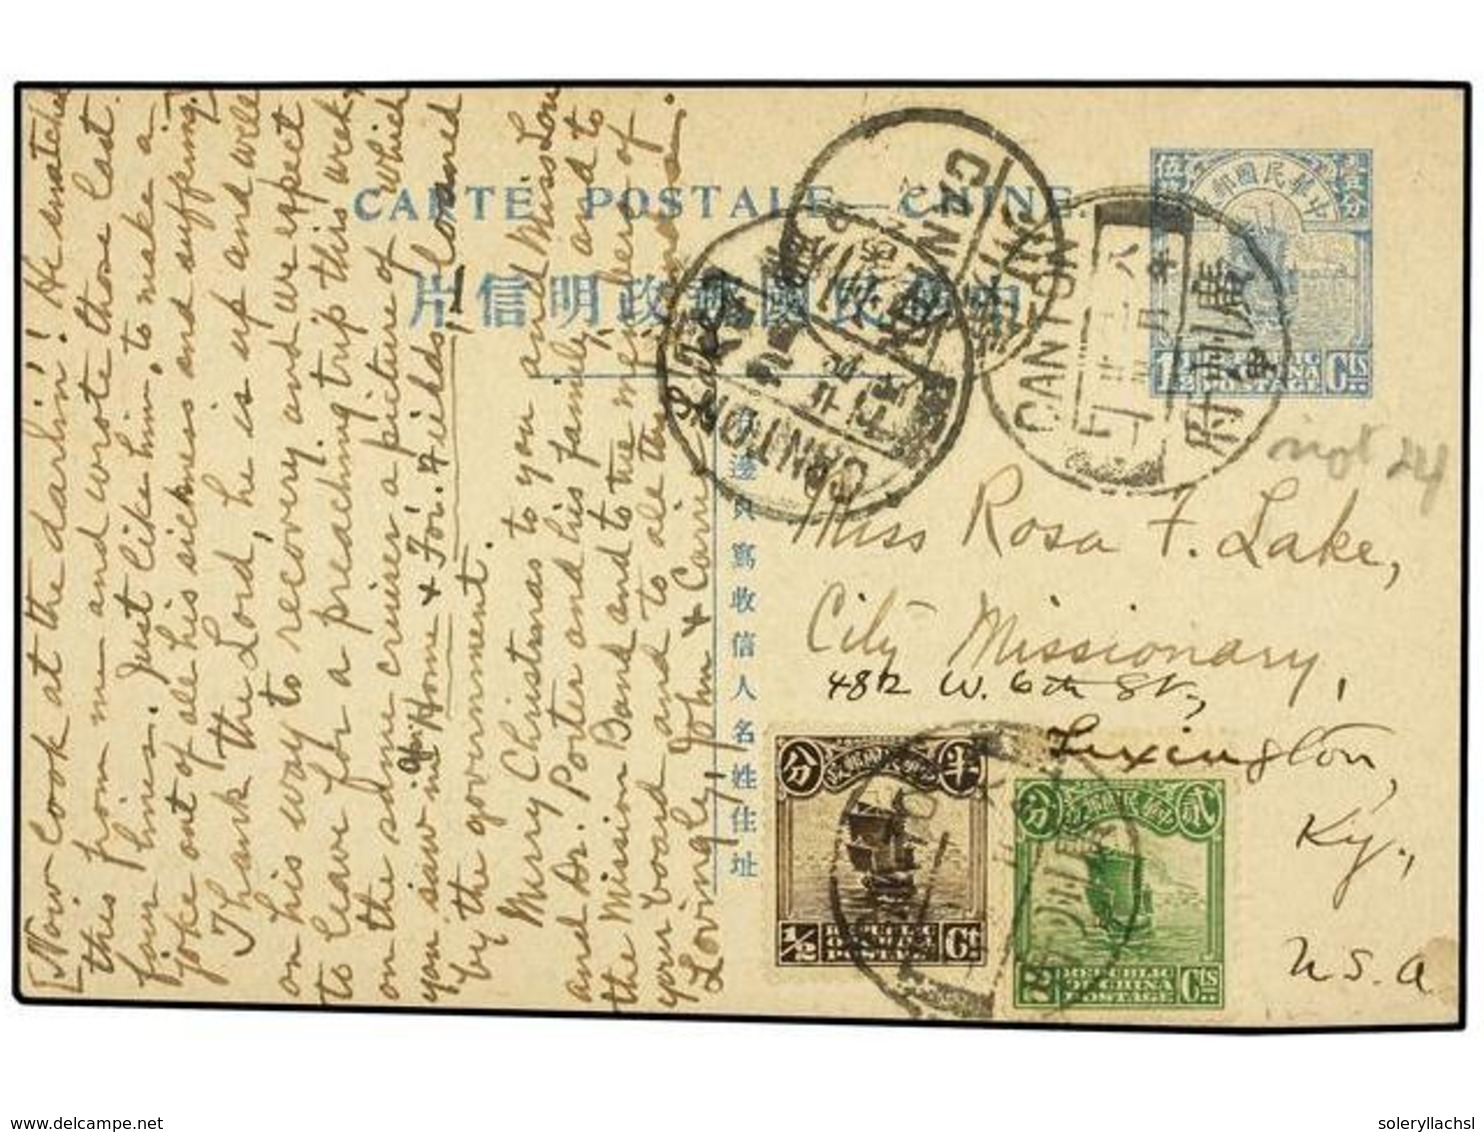 [Now look at the darlin'!! He snatched
this from me and wrote those last
four lines. Just like him, to make a
joke out of all his sickness and suffering.]
Thank the Lord, he is up and well
on his way to recovery and we expect
to leave for a preaching trip this week,
on the same cruiser a picture of which
you saw in "Home & For. Fields," loaned
by the government.
Merry Christmas to you and Miss Lou
and Dr. Porter and his family, and to
the Mission Band and to the members of
your board and to all the
Lovingly, John & Carrie
CARTE POSTALE — CHINE.
中華民國郵政明信片
寫收信人名姓住址
中華民國郵政
壹分
伍
1½ REPUBLIC OF CHINA POSTAGE Cts
CANTON
CANTON
CANTON
廣州府
八年
not 24
Miss Rosa F. Lake,
City Missionary,
482 W. 6th St.,
Lexington,
Ky.,
U.S.A
分 中華民國郵政 半
½ REPUBLIC OF CHINA POSTAGE Ct
分 中華民國郵政 貳
REPUBLIC OF CHINA POSTAGE Cts
www.delcampe.net
soleryllachsl